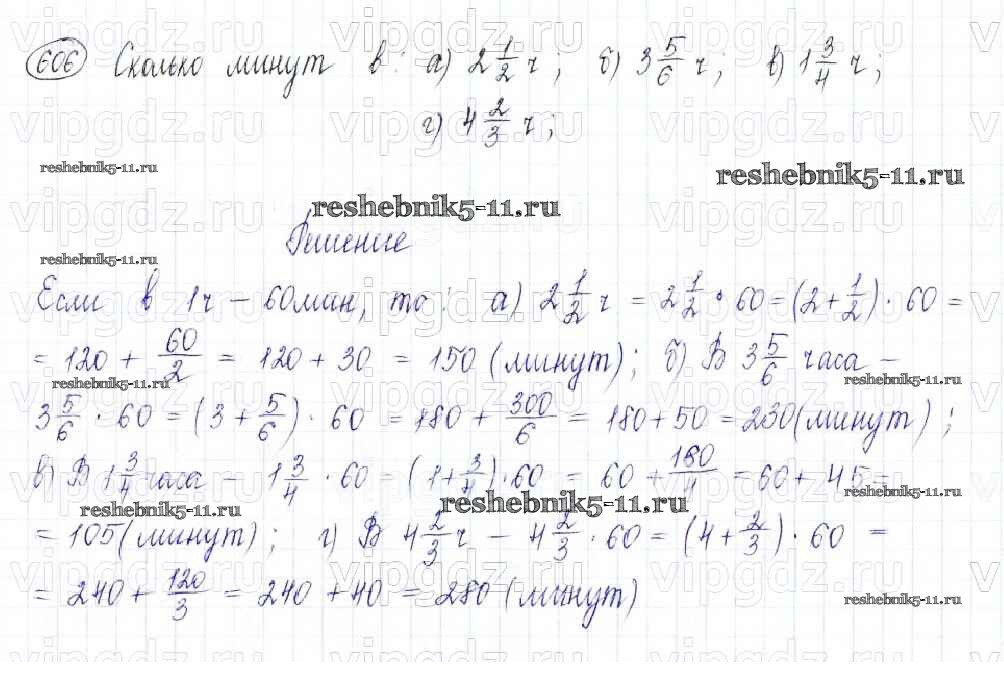 606 Сколько минут в: а) 2 1/2 ч; б) 3 5/6 ч; в) 1 3/4 ч;
г) 4 2/3 ч;
reshebnik5-11.ru
reshebnik5-11.ru
reshebnik5-11.ru
Решение
reshebnik5-11.ru
Если в 1ч – 60мин, то: а) 2 1/2 ч = 2 1/2 · 60 = (2 + 1/2) · 60 =
= 120 + 60/2 = 120 + 30 = 150 (минут); б) В 3 5/6 часа –
reshebnik5-11.ru
reshebnik5-11.ru
3 5/6 · 60 = (3 + 5/6) · 60 = 180 + 300/6 = 180 + 50 = 230 (минут);
в) В 1 3/4 часа – 1 3/4 · 60 = (1 + 3/4) · 60 = 60 + 180/4 = 60 + 45 =
reshebnik5-11.ru
reshebnik5-11.ru
reshebnik5-11.ru
= 105 (минут); г) В 4 2/3 ч – 4 2/3 · 60 = (4 + 2/3) · 60 =
= 240 + 120/3 = 240 + 40 = 280 (минут)
reshebnik5-11.ru
vipgdz.ru